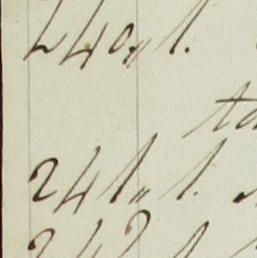 240„ 1.
to
241„ 1.
242 1